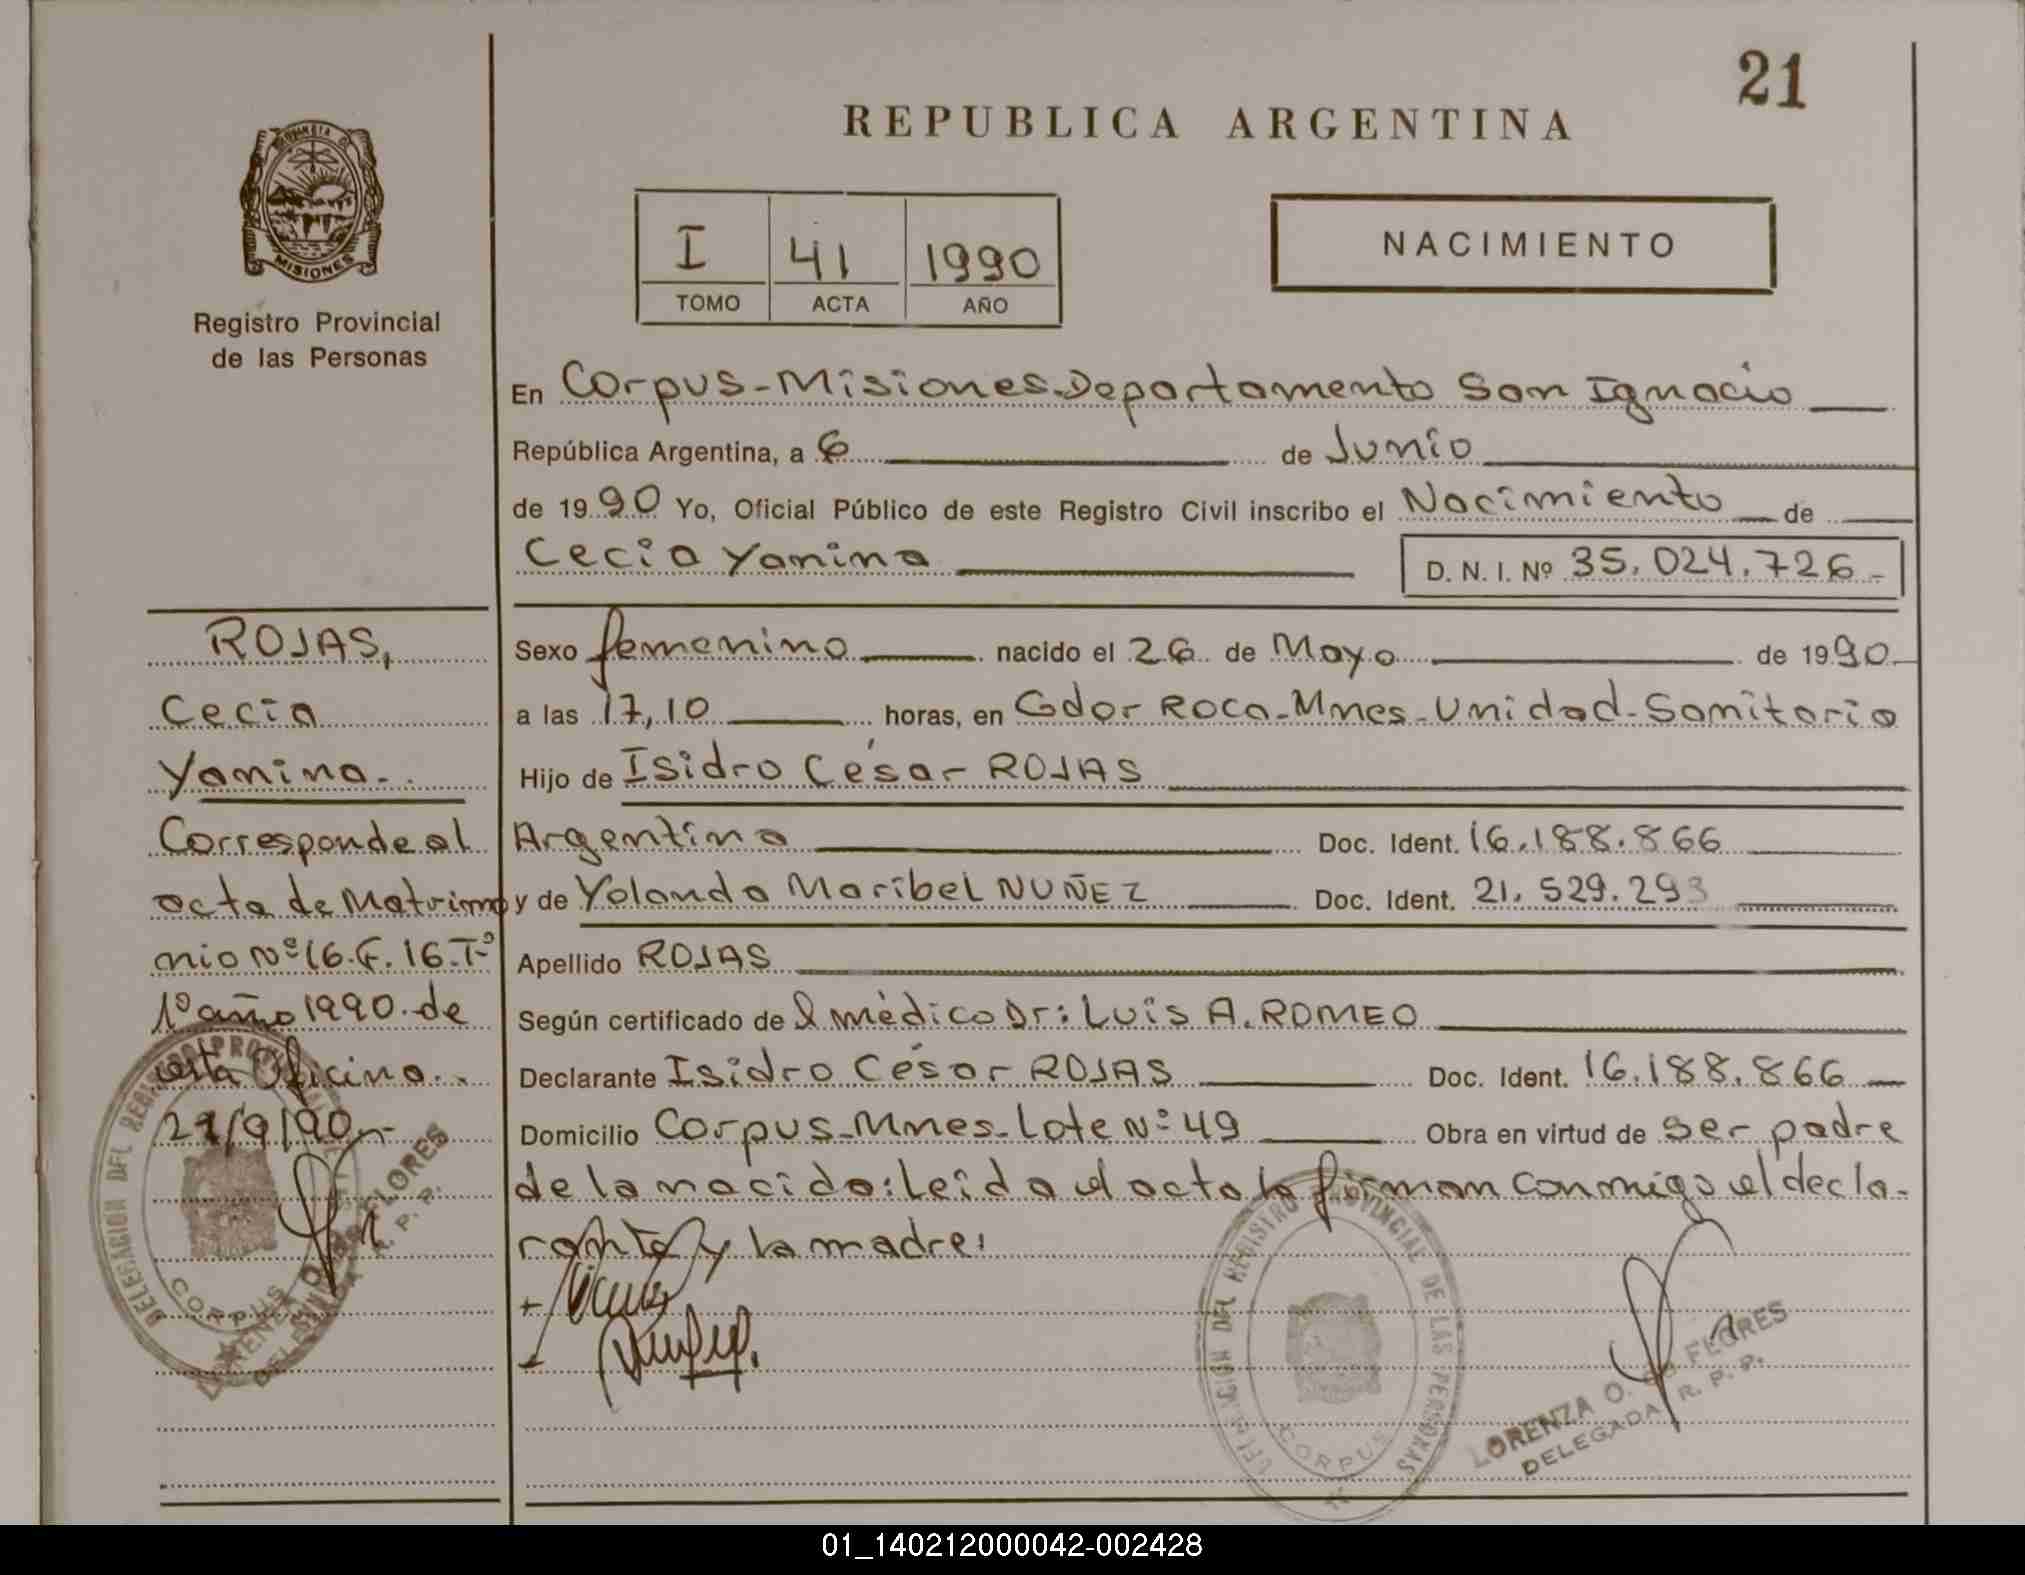 21
REPUBLICA ARGENTINA
MISIONES
Registro Provincial
de las Personas
I 41 1990
TOMO ACTA AÑO
NACIMIENTO
En Corpus-Misiones-Departamento San Ignacio
República Argentina, a 6 de Junio
de 1990 Yo, Oficial Público de este Registro Civil inscribo el Nacimiento de
Cecia Yanina D. N. I. Nº 35.024.726-
ROJAS,
Cecia
Yanina-.
Corresponde al
acta de Matrimo
nio Nº16.F.16.Tº
1º año 1990 de
esta Oficina.
21/9/90.-
Sexo femenino nacido el 26 de Mayo de 1990
a las 17,10 horas, en Gdor Roca-Mnes-Unidad-Sanitaria
Hijo de Isidro César ROJAS
Argentina Doc. Ident. 16.188.866
y de Yolanda Maribel NUÑEZ Doc. Ident. 21.529.293
Apellido ROJAS
Según certificado de l médico Dr: Luis A. ROMEO
Declarante Isidro César ROJAS Doc. Ident. 16.188.866
Domicilio Corpus-Mnes-Lote Nº 49 Obra en virtud de ser padre
de la nacida: Leída el acta la firman conmigo el decla-
rante y la madre:
DELEGACION DEL REGISTRO PROVINCIAL DE LAS PERSONAS
CORPUS
LORENZA O. de FLORES
DELEGADA R. P. P.
01_140212000042-002428